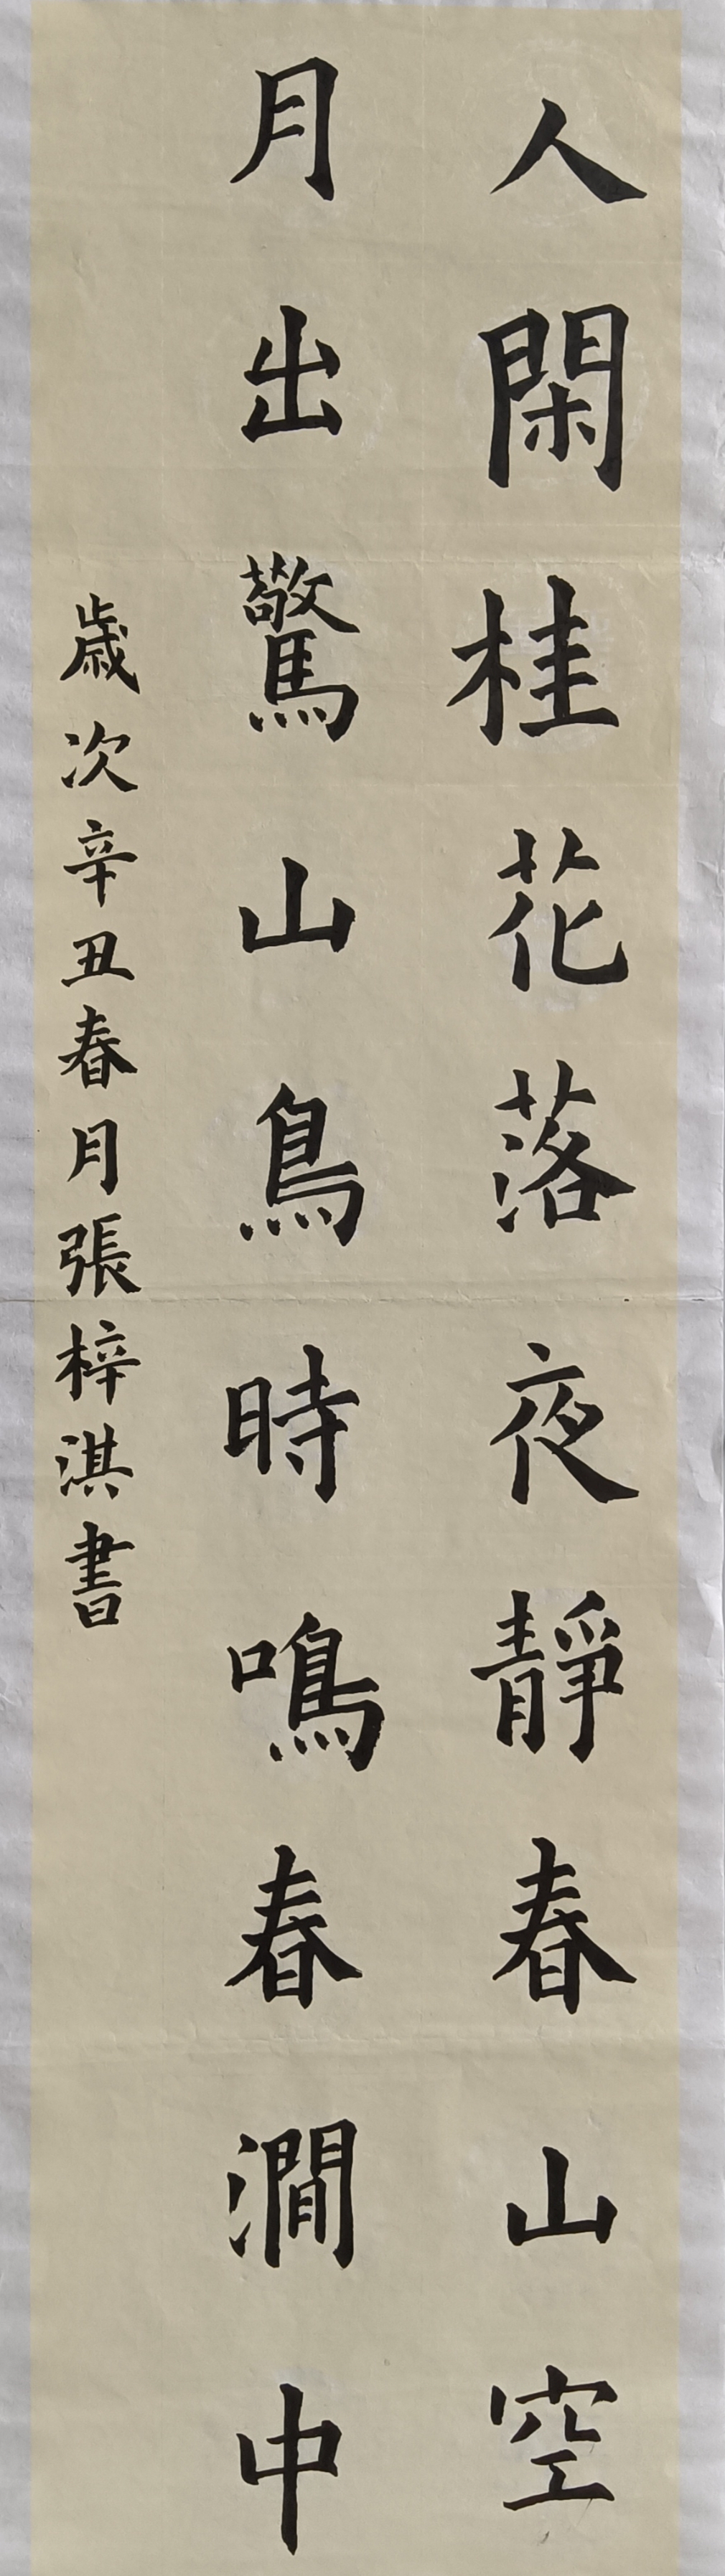 人閑桂花落夜靜春山空
月出驚山鳥時鳴春澗中
歳次辛丑春月張梓淇書